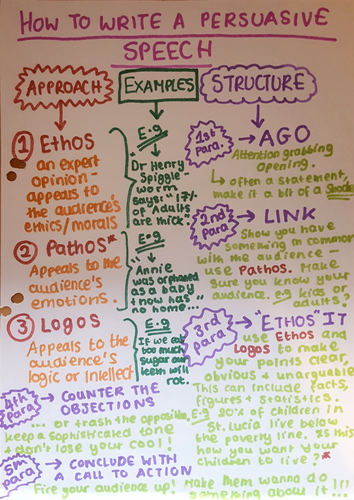 HOW TO WRITE A PERSUASIVE
SPEECH
APPROACH
EXAMPLES
STRUCTURE
1 Ethos
an expert
opinion -
appeals to
the audience's
ethics/morals
2 Pathos*
Appeals to the
audience's
emotions.
3 Logos
Appeals to the
audience's
logic or intellect
E.g
"Dr Henry
Spiggle-
worm
says: "17%
of Adults
are thick"."
E.g
"Annie
was orphaned
as a baby
+ now has
no home..."
E.g
If we eat
too much
sugar our
teeth will
rot.
1st
Para.
→ AGO
Attention grabbing
opening.
↳ often a statement,
make it a bit of a shock
2nd
Para
→ LINK
Show you have
something in common
with the audience -
use Pathos. Make
sure you know your
audience. eg kids or
adults?
3rd
Para
→ "ETHOS" IT
use Ethos and
Logos to make
your points clear,
obvious + unarguable
This can include facts,
figures + statistics.
E.g 20% of children in
St. Lucia live below
the poverty line. Is this
how you want your
children to live?*
4th
para
→ COUNTER THE
OBJECTIONS
... or trash the opposition,
keep a sophisticated tone
+ don't lose your cool!
5th
para
→ CONCLUDE WITH
A CALL TO ACTION
Fire your audience up! Make them wanna do
something about it!!!